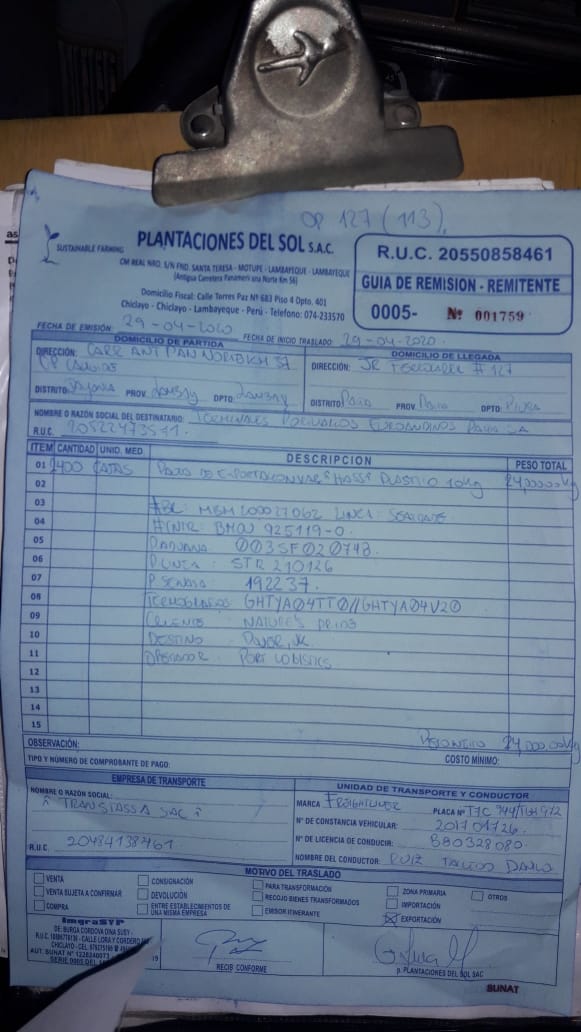 OP 127 (113).
SUSTAINABLE FARMING
PLANTACIONES DEL SOL S.A.C.
CM REAL NRO. S/N FND. SANTA TERESA - MOTUPE - LAMBAYEQUE - LAMBAYEQUE
(Antigua Carretera Panamericana Norte Km 56)
Domicilio Fiscal: Calle Torres Paz Nº 683 Piso 4 Dpto. 401
Chiclayo - Chiclayo - Lambayeque - Perú - Telefono: 074-233570
R.U.C. 20550858461
GUIA DE REMISION - REMITENTE
0005- Nº 001759
FECHA DE EMISIÓN: 29-04-2020 FECHA DE INICIO TRASLADO: 29-04-2020.
DOMICILIO DE PARTIDA
DIRECCIÓN: CARR ANT PAN NORTE KM 57
DISTRITO: PROV. DPTO:
DOMICILIO DE LLEGADA
DIRECCIÓN: JR # 127
DISTRITO: PAITA PROV. PAITA DPTO: PIURA
NOMBRE O RAZÓN SOCIAL DEL DESTINATARIO: TERMINALES PORTUARIOS EUROANDINOS PAITA SA
R.U.C. 20522473571.
ITEM CANTIDAD UNID. MED DESCRIPCION PESO TOTAL
01 2400 CAJAS "HASS" PLASTICO 10Kg 24,000.00Kg
02
03 #BL: MBM200027062 LINEA: SEALAND.
04 #CNTR: BMOU 925119-0.
05 P.ADUANA: 003SF020748.
06 P.LINEA: STR210126
07 P.SENASA: 192237.
08 TERMOGRAFOS: GHTYA04TT0//GHTYA04V20
09 CLIENTE: NATURE'S PRIDE
10 DESTINO: DOVER, UK.
11 OPERADOR: PORT LOGISTICS
12
13
14
15
PESO NETO 24,000.00Kg
OBSERVACIÓN:
TIPO Y NÚMERO DE COMPROBANTE DE PAGO: COSTO MÍNIMO:
EMPRESA DE TRANSPORTE
NOMBRE O RAZÓN SOCIAL:
"TRANSTASSA SAC"
R.U.C. 20484138461
UNIDAD DE TRANSPORTE Y CONDUCTOR
MARCA FREIGHTLINER PLACA Nº T7C 944/
Nº DE CONSTANCIA VEHICULAR:
Nº DE LICENCIA DE CONDUCIR: B80328080
NOMBRE DEL CONDUCTOR: RUIZ
MOTIVO DEL TRASLADO
VENTA
VENTA SUJETA A CONFIRMAR
COMPRA
CONSIGNACIÓN
DEVOLUCIÓN
ENTRE ESTABLECIMIENTOS DE
UNA MISMA EMPRESA
PARA TRANSFORMACIÓN
RECOJO BIENES TRANSFORMADOS
EMISOR ITINERANTE
ZONA PRIMARIA
IMPORTACIÓN
EXPORTACIÓN
OTROS
DE: BURGA CORDOVA DINA SUSY
RECIBI CONFORME
p. PLANTACIONES DEL SOL SAC
SUNAT